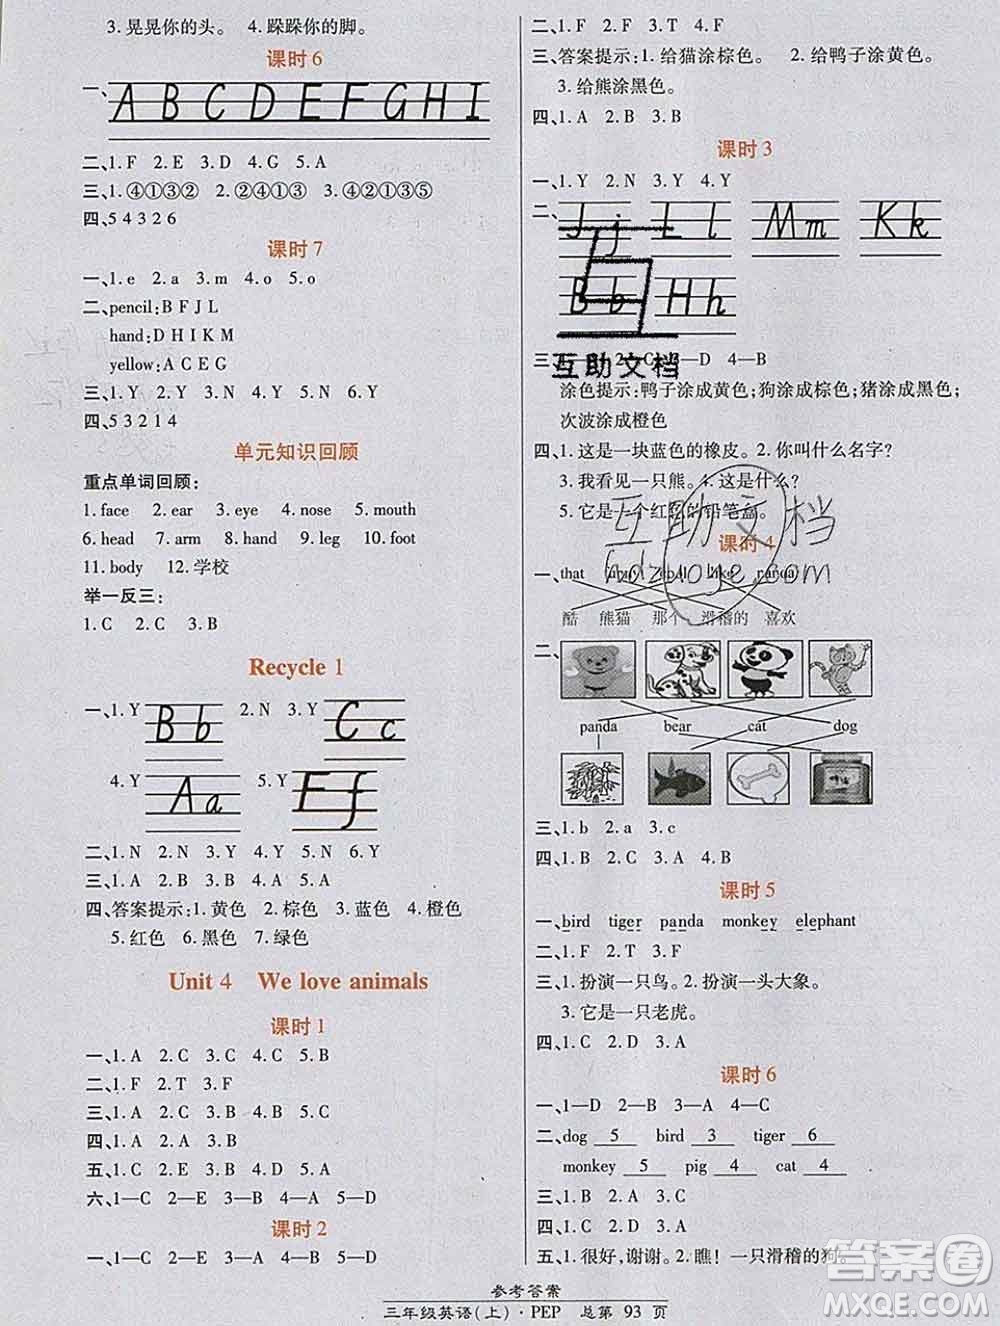 3. 晃晃你的头。 4. 跺跺你的脚。
课时 6
一、A B C D E F G H I
二、1. F 2. E 3. D 4. G 5. A
三、1. ④①③② 2. ②④①③ 3. ②④①③⑤
四、5 4 3 2 6
课时 7
一、1. e 2. a 3. m 4. o 5. o
二、pencil: B F J L
hand: D H I K M
yellow: A C E G
三、1. Y 2. Y 3. N 4. N 5. Y
四、5 3 2 1 4
单元知识回顾
重点单词回顾：
1. face 2. ear 3. eye 4. nose 5. mouth
6. head 7. arm 8. hand 9. leg 10. foot
11. body 12. 学校
举一反三：
1. C 2. C 3. B
Recycle 1
一、1. Y Bb 2. N 3. Y Cc
4. Y Aa 5. Y Ff
二、1. N 2. N 3. Y 4. Y 5. N 6. Y
三、1. A 2. C 3. C 4. A 5. B
四、答案提示：1. 黄色 2. 棕色 3. 蓝色 4. 橙色
5. 红色 6. 黑色 7. 绿色
Unit 4 We love animals
课时 1
一、1. A 2. C 3. C 4. C 5. B
二、1. F 2. T 3. F
三、1. A 2. C 3. B 4. A 5. B
四、1. A 2. A 3. B
五、1. C 2. C 3. B 4. A 5. C
六、1—C 2—E 3—B 4—A 5—D
课时 2
一、1—C 2—E 3—B 4—A 5—D
二、1. F 2. F 3. F 4. T
三、答案提示：1. 给猫涂棕色。 2. 给鸭子涂黄色。
3. 给熊涂黑色。
四、1. A 2. A 3. B 4. B
课时 3
一、1. Y 2. N 3. Y 4. Y
二、Jj Ll Mm Kk
Bb Hh
三、 2—C 3—D 4—B
涂色提示：鸭子涂成黄色；狗涂成棕色；猪涂成黑色；
次波涂成橙色
四、1. 这是一块蓝色的橡皮。2. 你叫什么名字？
3. 我看见一只熊。4. 这是什么？
5. 它是一个红 的铅笔盒。
课时 4
一、that like panda
酷 熊猫 那个 滑稽的 喜欢
二、
panda bear cat dog
三、1. b 2. a 3. c
四、1. B 2. C 3. A 4. B
课时 5
一、bird tiger panda monkey elephant
二、1. F 2. T 3. F
三、1. 扮演一只鸟。2. 扮演一头大象。
3. 它是一只老虎。
四、1. C 2. D 3. A
课时 6
一、1—D 2—B 3—A 4—C
二、dog 5 bird 3 tiger 6
monkey 5 pig 4 cat 4
三、1. B 2. A 3. C
四、1. C 2. D 3. A
五、1. 很好，谢谢。2. 瞧！一只滑稽的狗。
参考答案
三年级英语(上)·PEP 总第 93 页
互助文档
互助文档
hdzuoye.com
答案圈
MXQE.COM